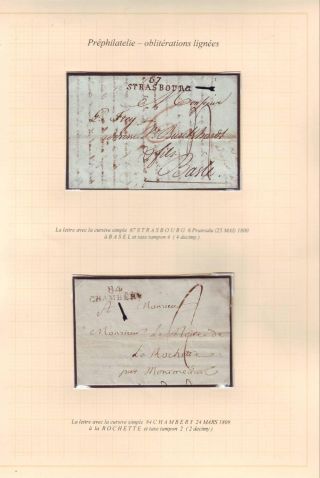 Préphilatelie – oblitérations lignées
67
STRASBOURG
A Messieurs
Basle
La lettre avec la cursive simple 67 STRASBOURG 6 Prairial (25 MAI) 1800
à BASEL et taxe tampon 4 (4 decimy)
84
CHAMBÉRY
A Monsieur
2
Monsieur Le Maire de
La Rochette
par Montmelian
La lettre avec la cursive simple 84 CHAMBERY 24 MARS 1809
à la ROCHETTE et taxe tampon 2 (2 decimy)